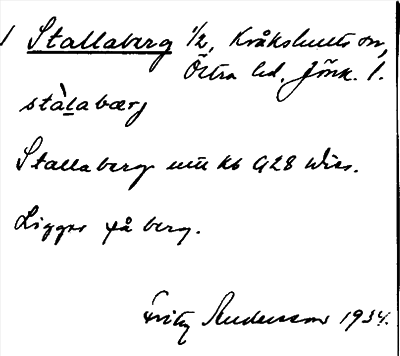 1 Stallaberg 1/2, Kråkshults sn,
Östra hd. Jönk. l.
stàlabærj
Stallaberg utt kb 928 Wiss.
Ligger på berg.
Fritz Andersson 1934.